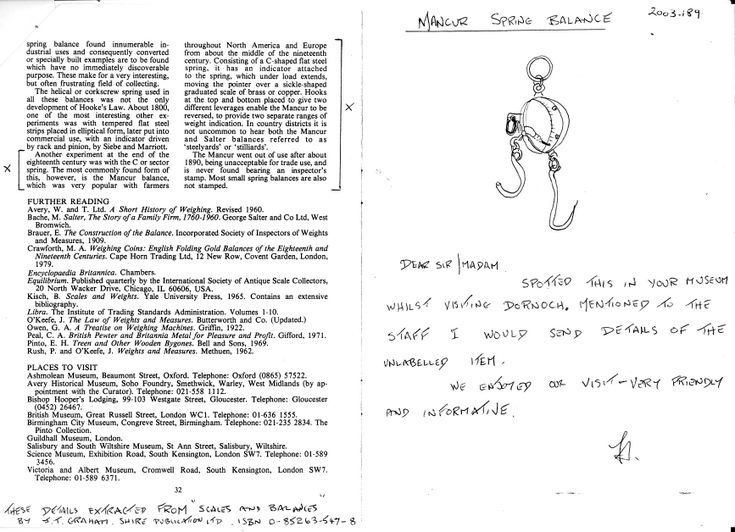 spring balance found innumerable in-
dustrial uses and consequently converted
or specially built examples are to be found
which have no immediately discoverable
purpose. These make for a very interesting,
but often frustrating field of collecting.
The helical or corkscrew spring used in
all these balances was not the only
development of Hooke's Law. About 1800,
one of the most interesting other ex-
periments was with tempered flat steel
strips placed in elliptical form, later put into
commercial use, with an indicator driven
by rack and pinion, by Siebe and Marriott.
Another experiment at the end of the
eighteenth century was with the C or sector
spring. The most commonly found form of
this, however, is the Mancur balance,
which was very popular with farmers
throughout North America and Europe
from about the middle of the nineteenth
century. Consisting of a C-shaped flat steel
spring, it has an indicator attached
to the spring, which under load extends,
moving the pointer over a sickle-shaped
graduated scale of brass or copper. Hooks
at the top and bottom placed to give two
different leverages enable the Mancur to be
reversed, to provide two separate ranges of
weight indication. In country districts it is
not uncommon to hear both the Mancur
and Salter balances referred to as
'steelyards' or 'stilliards'.
The Mancur went out of use after about
1890, being unacceptable for trade use, and
is never found bearing an inspector's
stamp. Most small spring balances are also
not stamped.
x
x
FURTHER READING
Avery, W. and T. Ltd. A Short History of Weighing. Revised 1960.
Bache, M. Salter, The Story of a Family Firm, 1760-1960. George Salter and Co Ltd, West
Bromwich.
Brauer, E. The Construction of the Balance. Incorporated Society of Inspectors of Weights
and Measures, 1909.
Crawforth, M. A. Weighing Coins: English Folding Gold Balances of the Eighteenth and
Nineteenth Centuries. Cape Horn Trading Ltd, 12 New Row, Covent Garden, London,
1979.
Encyclopaedia Britannica. Chambers.
Equilibrium. Published quarterly by the International Society of Antique Scale Collectors,
20 North Wacker Drive, Chicago, IL 60606, USA.
Kisch, B. Scales and Weights. Yale University Press, 1965. Contains an extensive
bibliography.
Libra. The Institute of Trading Standards Administration. Volumes 1-10.
O'Keefe, J. The Law of Weights and Measures. Butterworth and Co. (Updated.)
Owen, G. A. A Treatise on Weighing Machines. Griffin, 1922.
Peal, C. A. British Pewter and Britannia Metal for Pleasure and Profit. Gifford, 1971.
Pinto, E. H. Treen and Other Wooden Bygones. Bell and Sons, 1969.
Rush, P. and O'Keefe, J. Weights and Measures. Methuen, 1962.
PLACES TO VISIT
Ashmolean Museum, Beaumont Street, Oxford. Telephone: Oxford (0865) 57522.
Avery Historical Museum, Soho Foundry, Smethwick, Warley, West Midlands (by ap-
pointment with the Curator). Telephone: 021-558 1112.
Bishop Hooper's Lodging, 99-103 Westgate Street, Gloucester. Telephone: Gloucester
(0452) 26467.
British Museum, Great Russell Street, London WC1. Telephone: 01-636 1555.
Birmingham City Museum, Congreve Street, Birmingham. Telephone: 021-235 2834. The
Pinto Collection.
Guildhall Museum, London.
Salisbury and South Wiltshire Museum, St Ann Street, Salisbury, Wiltshire.
Science Museum, Exhibition Road, South Kensington, London SW7. Telephone: 01-589
3456.
Victoria and Albert Museum, Cromwell Road, South Kensington, London SW7.
Telephone: 01-589 6371.
32
THESE DETAILS EXTRACTED FROM "SCALES AND BALANCES
BY J.T. GRAHAM. SHIRE PUBLICATION LTD. ISBN 0-85263-547-8
MANCUR SPRING BALANCE
2003.189
DEAR SIR/MADAM.
SPOTTED THIS IN YOUR MUSEUM
WHILST VISITING DORNOCH. MENTIONED TO THE
STAFF I WOULD SEND DETAILS OF THE
UNLABELLED ITEM.
WE ENJOYED OUR VISIT - VERY FRIENDLY
AND INFORMATIVE.